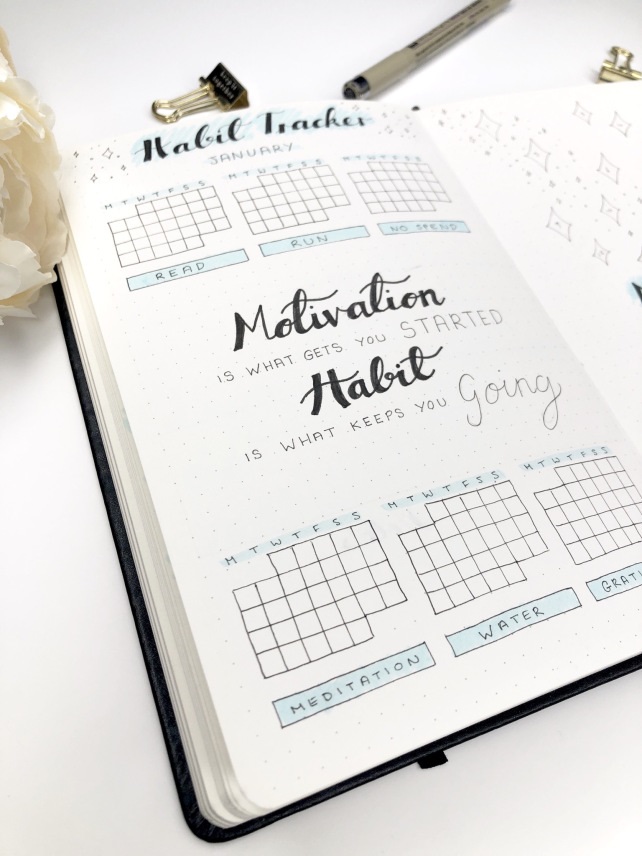 Habit Tracker
JANUARY
M T W T F S S
M T W T F S S
M T W T F S S
READ
RUN
NO SPEND
Motivation
IS WHAT GETS YOU STARTED
Habit
IS WHAT KEEPS YOU Going
M T W T F S S
M T W T F S S
M T W T F S S
MEDITATION
WATER
GRATI
keep it
together